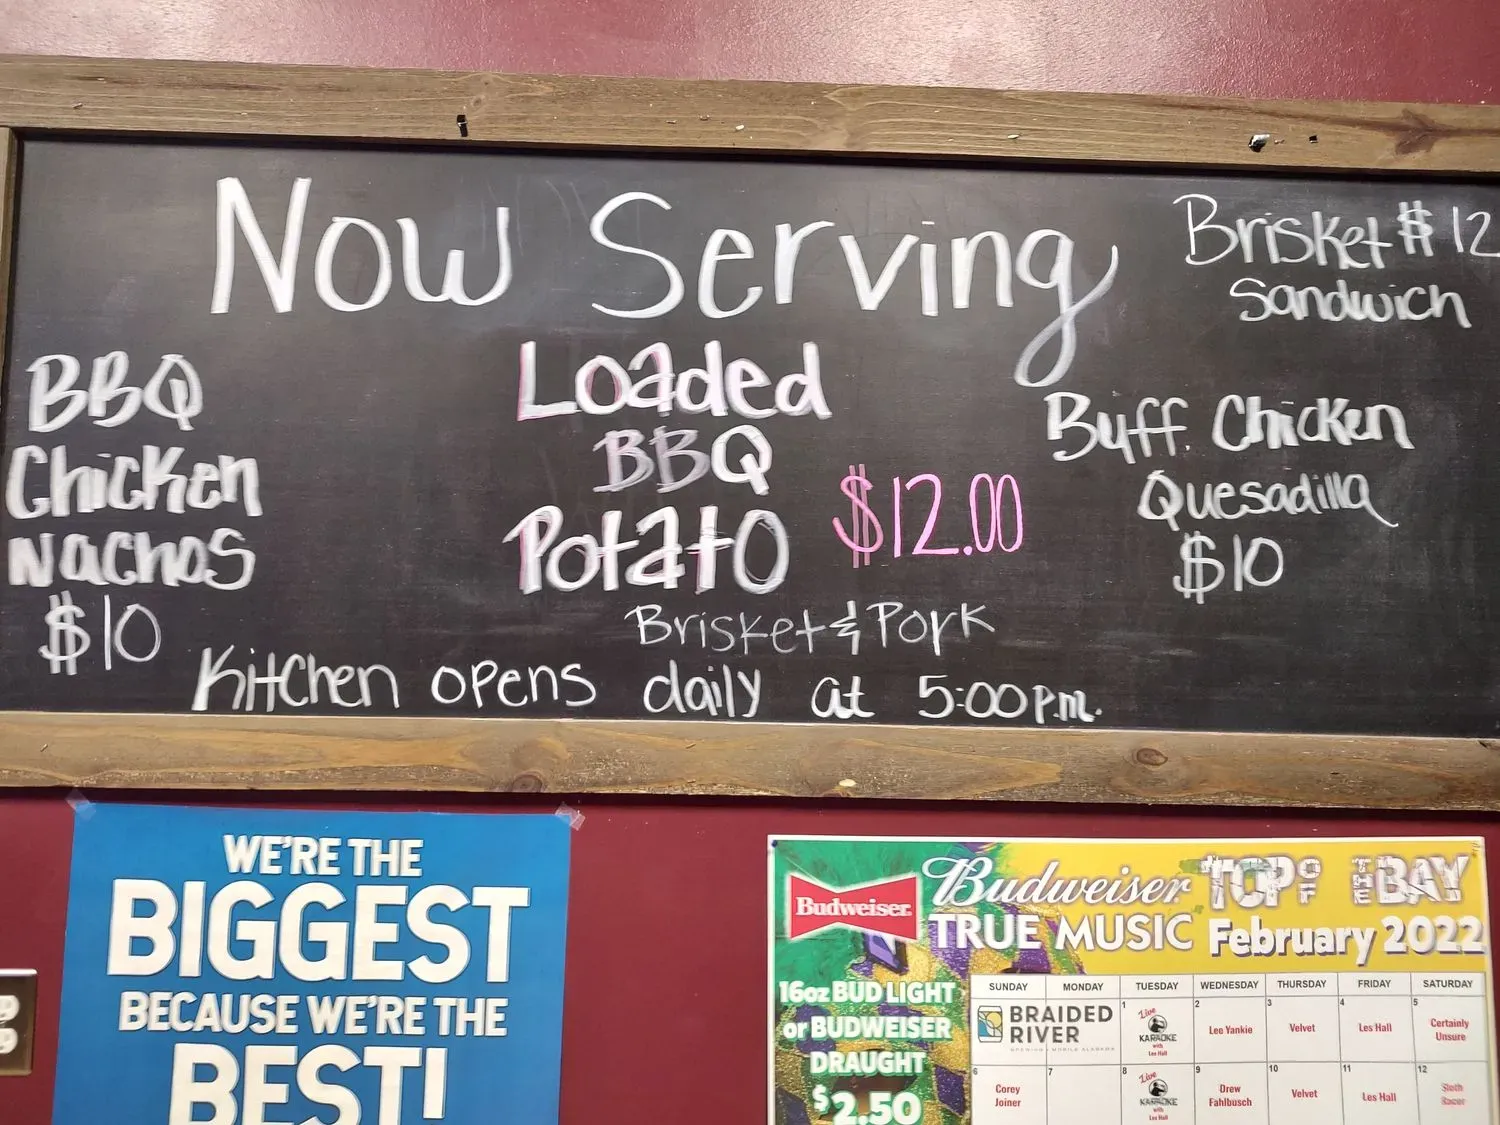 Now Serving
Brisket $12
Sandwich
BBQ
Chicken
Nachos
$10
Loaded
BBQ
Potato
$12.00
Brisket & Pork
Buff. Chicken
Quesadilla
$10
Kitchen opens daily at 5:00 p.m.
WE'RE THE
BIGGEST
BECAUSE WE'RE THE
BEST!
Budweiser
Budweiser TOP OF THE BAY
TRUE MUSIC February 2022
16oz BUD LIGHT
or BUDWEISER
DRAUGHT
$2.50
SUNDAY MONDAY TUESDAY WEDNESDAY THURSDAY FRIDAY SATURDAY
BRAIDED
RIVER
BREWING MOBILE ALABAMA
1
Live
KARAOKE
with
Les Hall
2
Lee Yankie
3
Velvet
4
Les Hall
5
Certainly
Unsure
6
Corey
Joiner
7
8
Live
KARAOKE
with
Les Hall
9
Drew
Fahlbusch
10
Velvet
11
Les Hall
12
Sloth
Racer